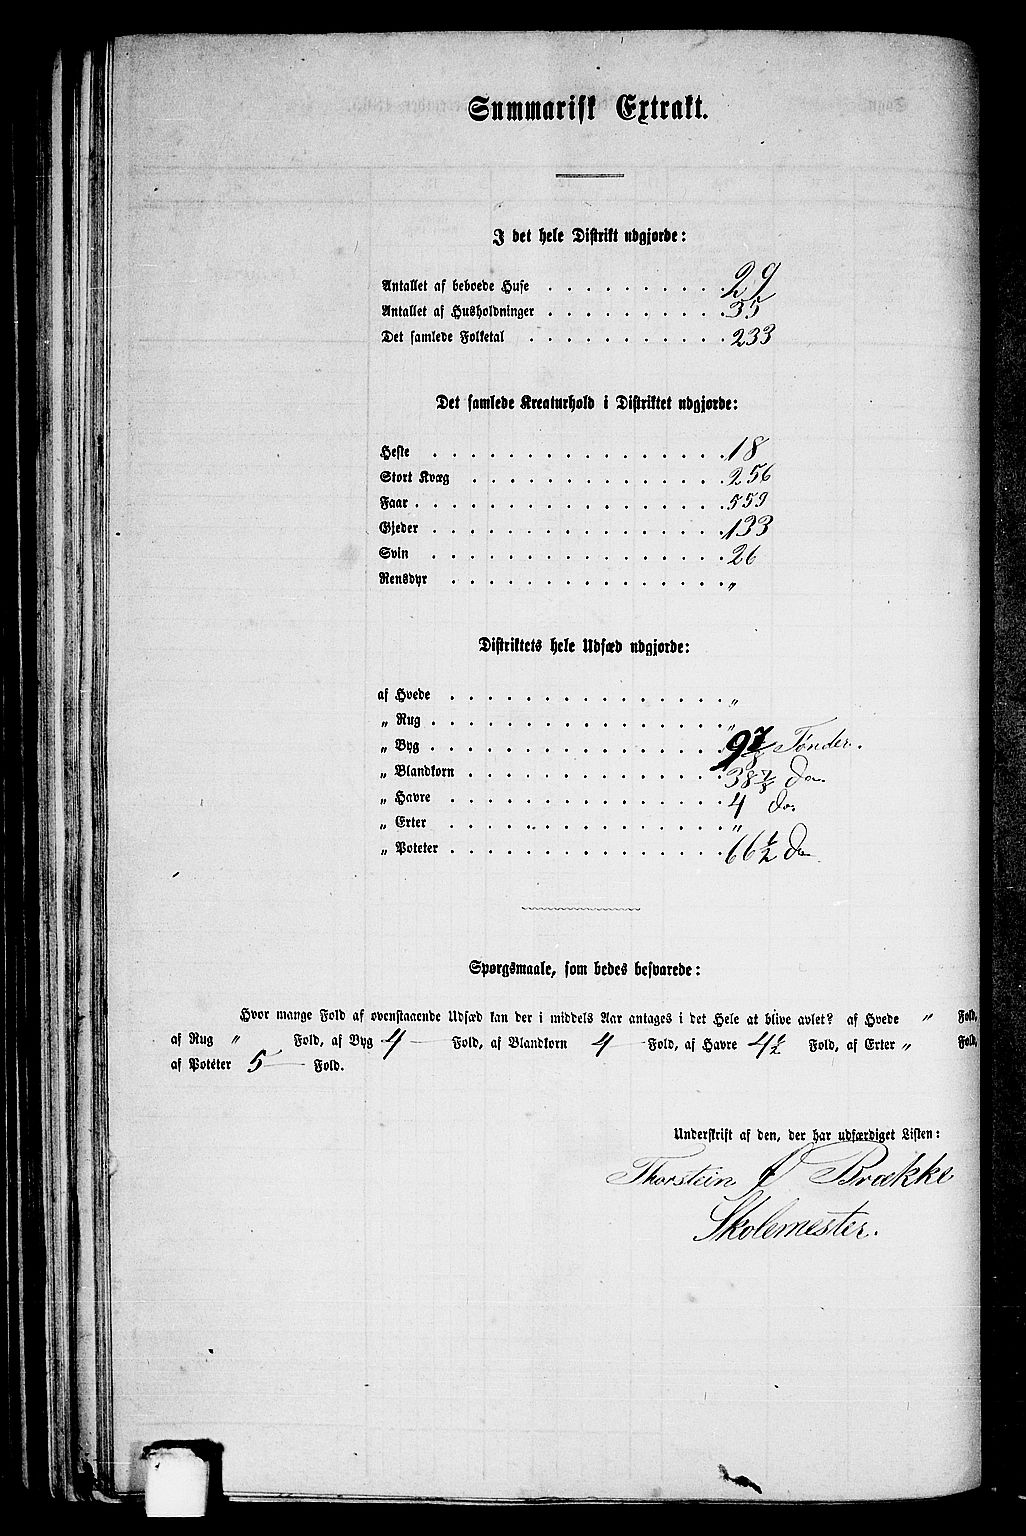 Summarisk Extrakt.
I det hele Distrikt udgjorde:
Antallet af beboede Huse . . . . . . . . . . 29
Antallet af Husholdninger . . . . . . . . . . 35
Det samlede Folketal . . . . . . . . . . . 233
Det samlede Kreaturhold i Distriktet udgjorde:
Heste . . . . . . . . . . . . . . . . 18
Stort Kvæg . . . . . . . . . . . . . . 256
Faar . . . . . . . . . . . . . . . . . 559
Gjeder . . . . . . . . . . . . . . . . 133
Svin . . . . . . . . . . . . . . . . 26
Rensdyr . . . . . . . . . . . . . . . „
Distriktets hele Udsæd udgjorde:
af Hvede . . . . . . . . . . . . . . . „
„ Rug . . . . . . . . . . . . . . . . „
„ Byg . . . . . . . . . . . . . . . . 9⅞ Tønder.
„ Blandkorn . . . . . . . . . . . . . . 38⅞ Do.
„ Havre . . . . . . . . . . . . . . . 4 Do.
„ Erter . . . . . . . . . . . . . . . „
„ Poteter . . . . . . . . . . . . . . . 66½ Do
Spørgsmaale, som bedes besvarede:
Hvor mange Fold af ovenstaaende Udsæd kan der i middels Aar antages i det Hele at blive avlet? af Hvede „ Fold,
af Rug „ Fold, af Byg 4 — Fold, af Blandkorn 4 — Fold, af Havre 4½ Fold, af Erter „ Fold,
af Poteter 5 — Fold.
Underskrift af den, der har udfærdiget Listen:
Thorstein Brække
Skolemester.